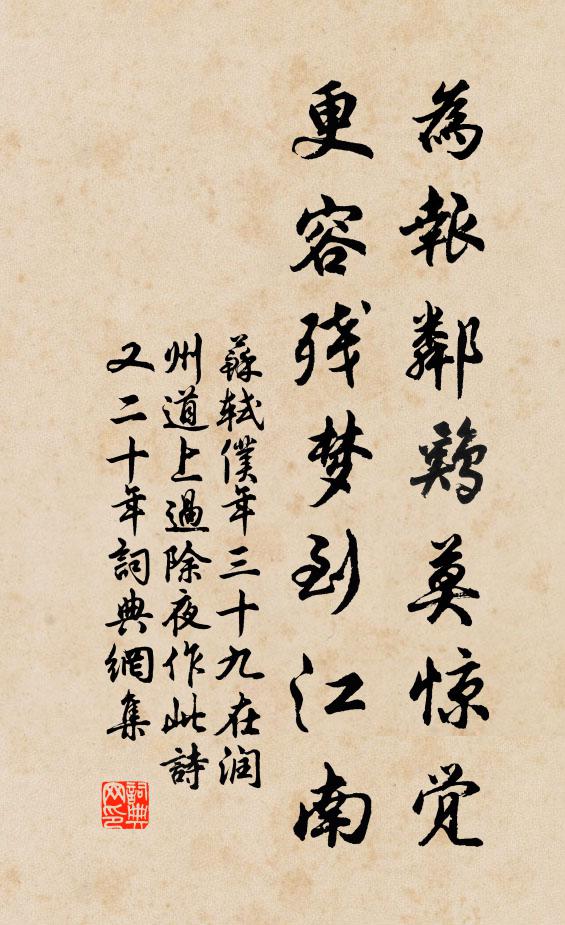 為報鄰鷄莫惊觉
更容残梦到江南
蘇軾僕年三十九在润
州道上過除夜作此詩
又二十年詞典網集
詞典网印